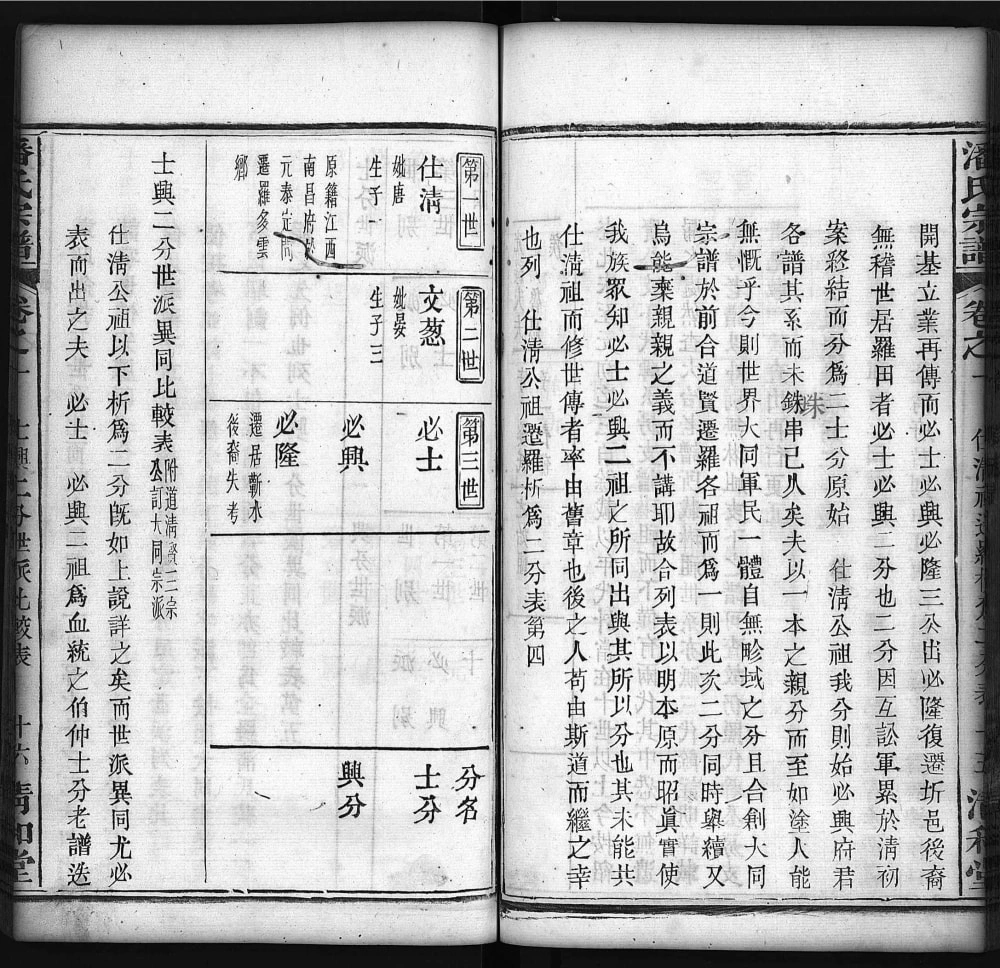 潘氏宗譜
卷之一
開基立業再傳而必士必興必隆三公出必隆復遷圻邑後裔
無稽世居羅田者必士必興二分也二分因互訟軍累於清初
案終結而分爲二士分原始 仕清公祖我分則始必興府君
各譜其系而未銖串已久矣夫以一本之親分而至如塗人能
無慨乎今則世界大同軍民一體自無畛域之分且合創大同
宗譜於前合道賢遷羅各祖而爲一則此次二分同時舉續又
烏能棄親親之義而不講耶故合列表以明本原而昭眞實使
我族衆知必士必興二祖之所同出與其所以分也其未能共
仕清祖而修世傳者率由舊章也後之人苟由斯道而繼之幸
也列 仕清公祖遷羅析爲二分表第四
第一世
仕清
妣唐
生子一
原籍江西
南昌府於
元泰定間
遷羅多雲
鄉
第二世
文葱
妣晏
生子三
第三世
必士
必興
必隆
遷居蘄水
後裔失考
分名
士分
興分
士興二分世派異同比較表附道清賢三宗
公訂大同宗派
仕清公祖以下析爲二分旣如上說詳之矣而世派異同尤必
表而出之夫 必士 必興二祖爲血統之伯仲士分老譜迭
潘氏宗譜
卷之一
士興二分世派比較表
十六 清和堂